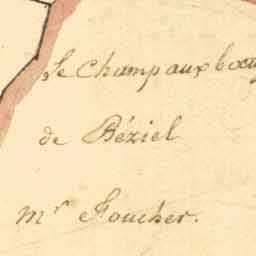 Le Champ aux bœu
de Béziel
Mr Foucher.